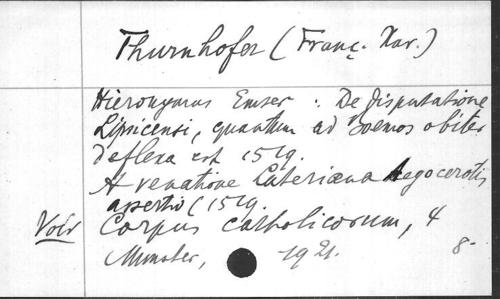 Thurnhofer (Franç. Xav.)
Hieronymus Emser : De disputatione
Lipsicensi, quantum ad Boemos obiter
deflexa est 1519.
A venatione Luteriana Aegocerotis
assertio (1519.
Corpus catholicorum, 4
Munster, 1921. 8-